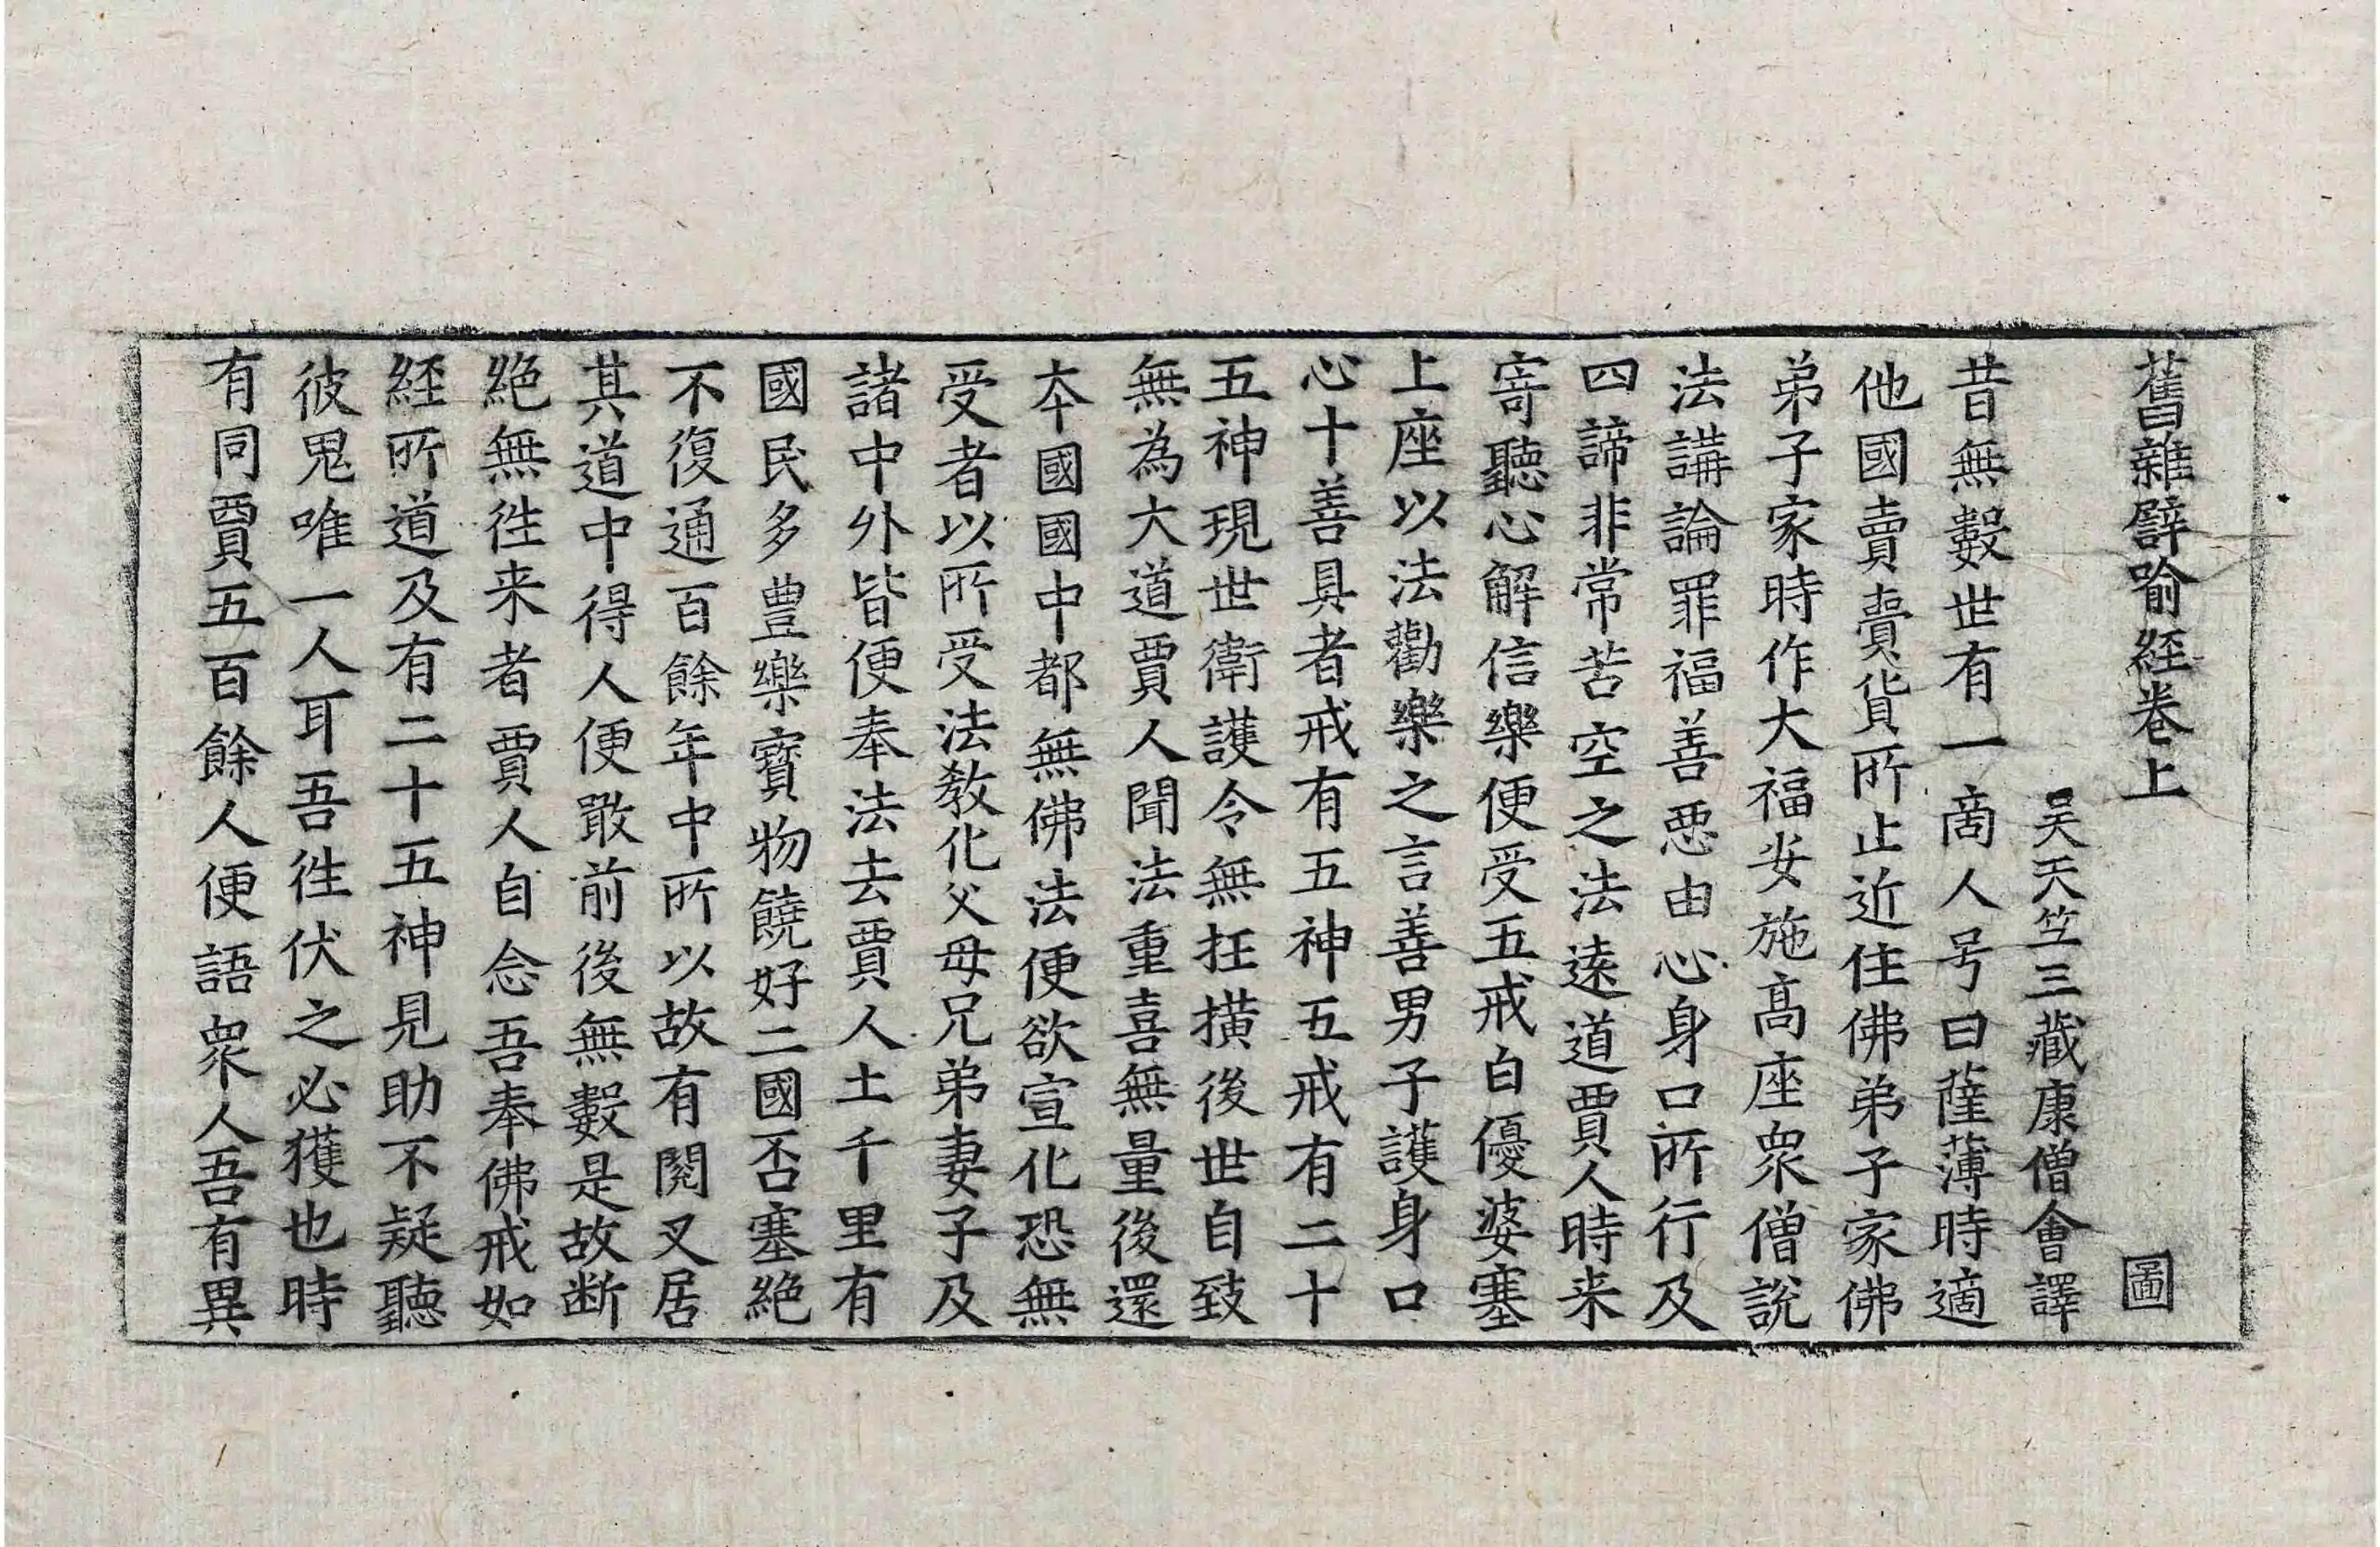 舊雜譬喻経卷上 圖
吴天竺三藏康僧會譯
昔無數世有一啇人号曰薩薄時適
他國賣賣貨所止近住佛弟子家佛
弟子家時作大福安施髙座衆僧說
法講論罪福善惡由心身口所行及
四諦非常苦空之法遠道賈人時来
寄聽心解信樂便受五戒白優婆塞
上座以法勸樂之言善男子護身口
心十善具者戒有五神五戒有二十
五神現世衛護令無抂橫後世自致
無為大道賈人聞法重喜無量後還
夲國國中都無佛法便欲宣化恐無
受者以所受法教化父母兄弟妻子及
諸中外皆便奉法去賈人土千里有
國民多豊樂寶物饒好二國否塞絕
不復通百餘年中所以故有閱叉居
其道中得人便敢前後無數是故断
絕無徃来者賈人自念吾奉佛戒如
経所道及有二十五神見助不疑聽
彼鬼唯一人耳吾徃伏之必獲也時
有同賈五百餘人便語衆人吾有異